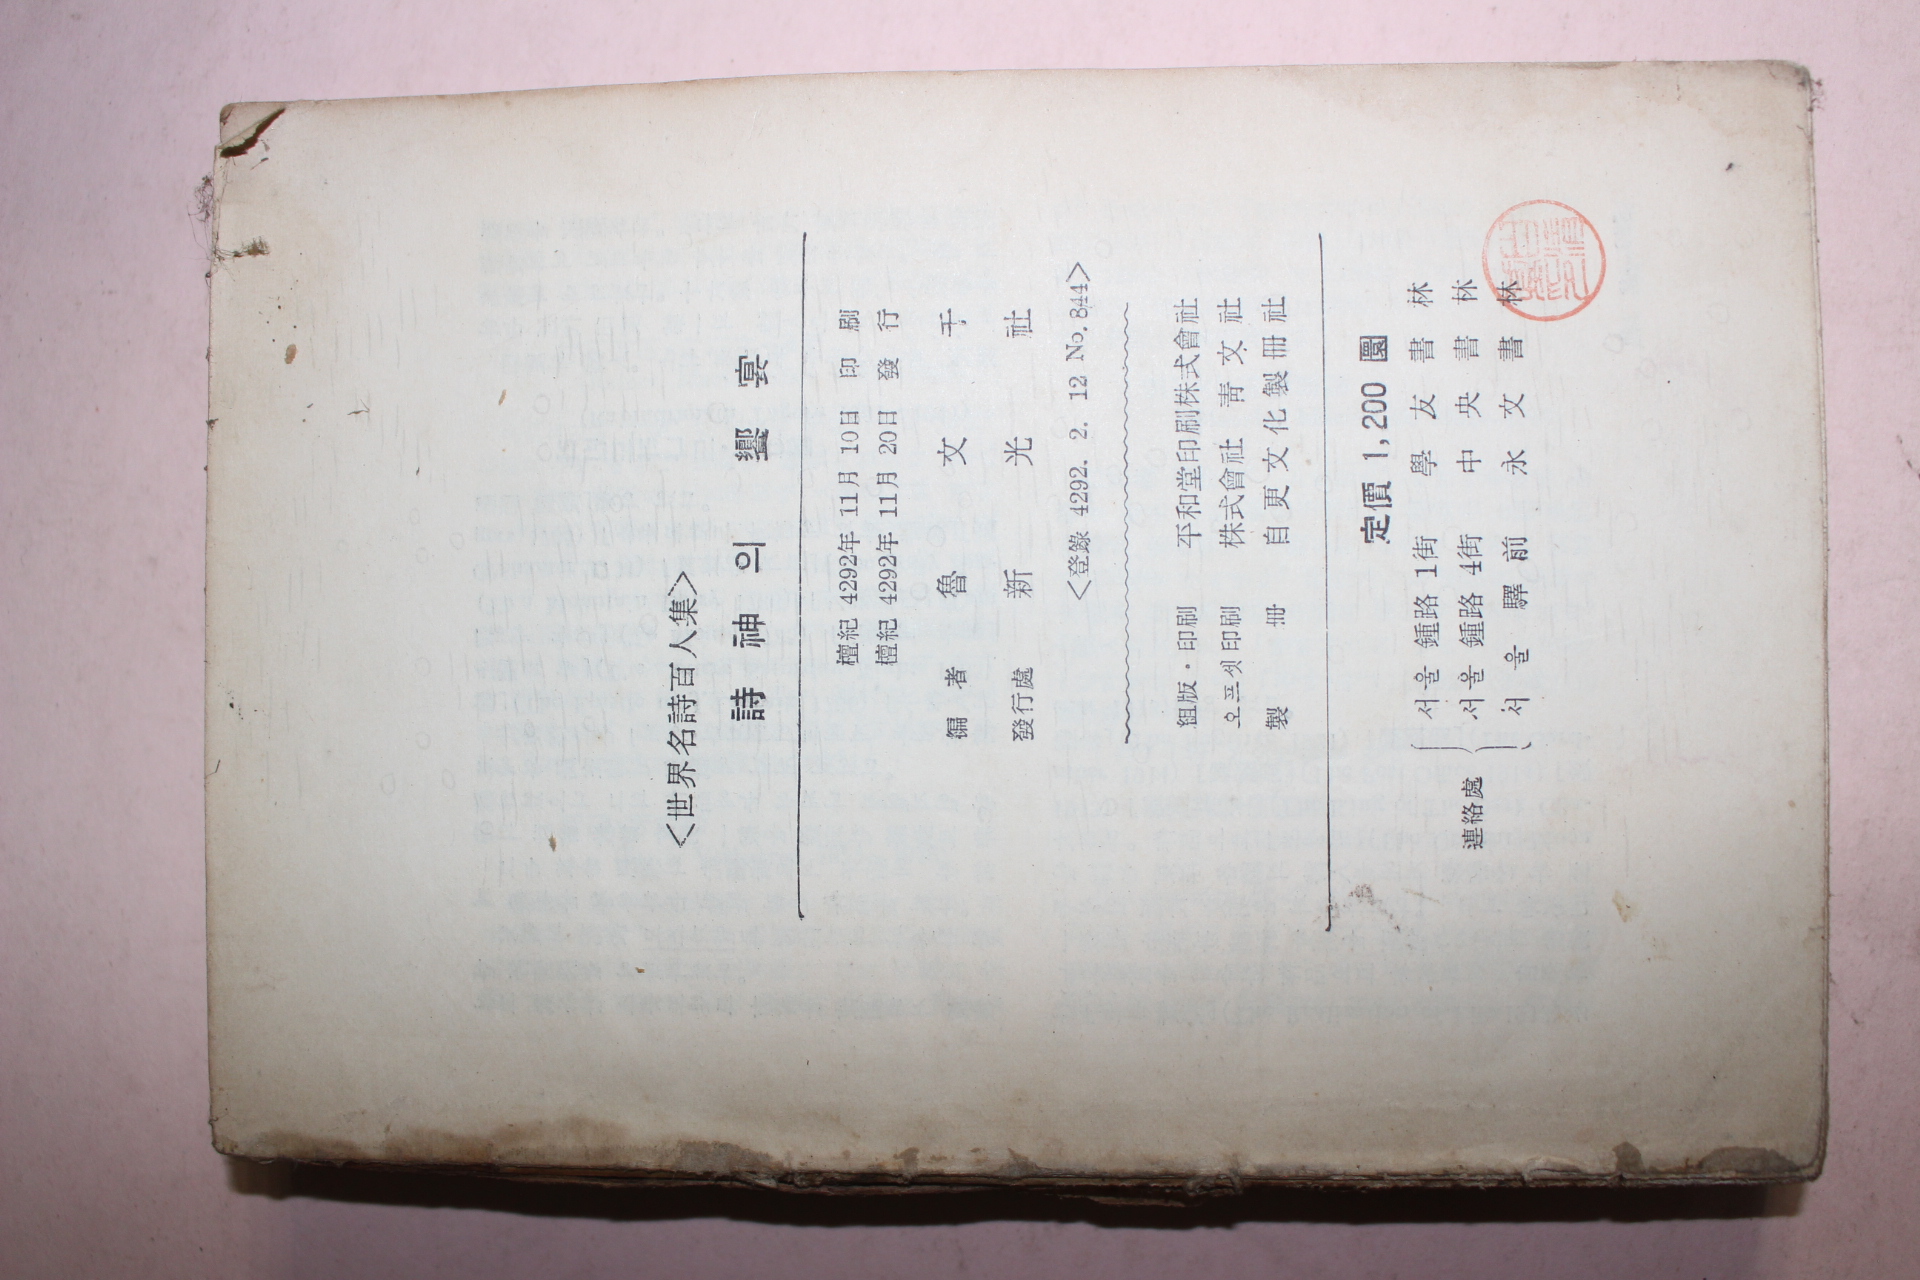 <世界名詩百人集>
詩神의 饗宴
檀紀 4292年 11月 10日 印刷
檀紀 4292年 11月 20日 發行
編者 魯文千
發行處 新光社
<登錄 4292. 2. 12 No. 844>
組版・印刷 平和堂印刷株式會社
오프셋印刷 株式會社 靑文社
製冊 自更文化製冊社
定價 1,200 圜
連絡處
서울 鍾路 1街 學友書林
서울 鍾路 4街 中央書林
서울驛前 永文書林